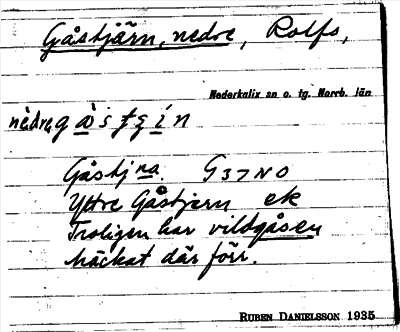 Gåstjärn, nedre, Rolfs,
Nederkalix sn o. tg. Norrb. län
nèdre gàstjín
Gåstjna. G37NO
Yttre Gåstjern ek
Troligen har vildgåsen
häckat där förr.
RUBEN DANIELSSON 1935